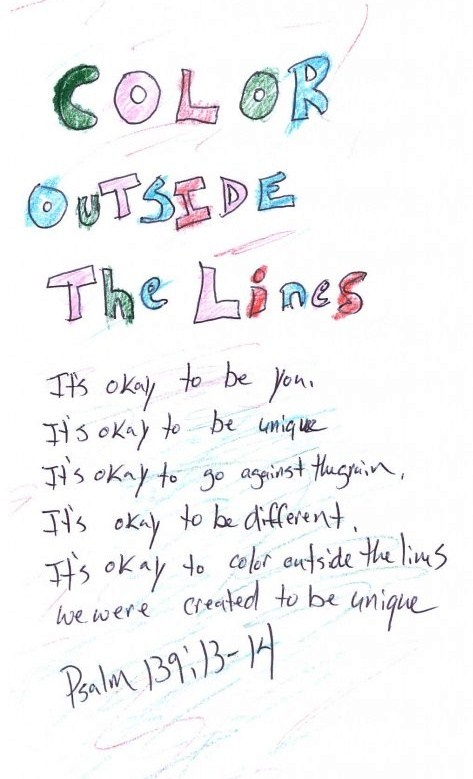 COLOR
OUTSIDE
The Lines
It's okay to be you.
It's okay to be unique
It's okay to go against the grain.
It's okay to be different.
It's okay to color outside the lines
we were created to be unique
Psalm 139:13-14